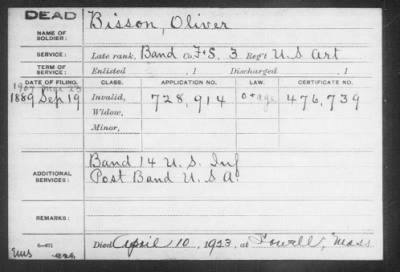 DEAD
NAME OF SOLDIER: Bisson, Oliver
SERVICE: Late rank, Band Co. F+S. 3 Reg't U.S Art
TERM OF SERVICE: Enlisted , 1 Discharged , 1
DATE OF FILING. CLASS. APPLICATION NO. LAW. CERTIFICATE NO.
1907 23
1889 Sep 19 Invalid, 728,914 476,739
Widow,
Minor,
ADDITIONAL SERVICES: Band 14 U.S. Inf
Post Band U.S.A.
REMARKS:
Died April 10, 1923, at Lowell, Mass
6-471